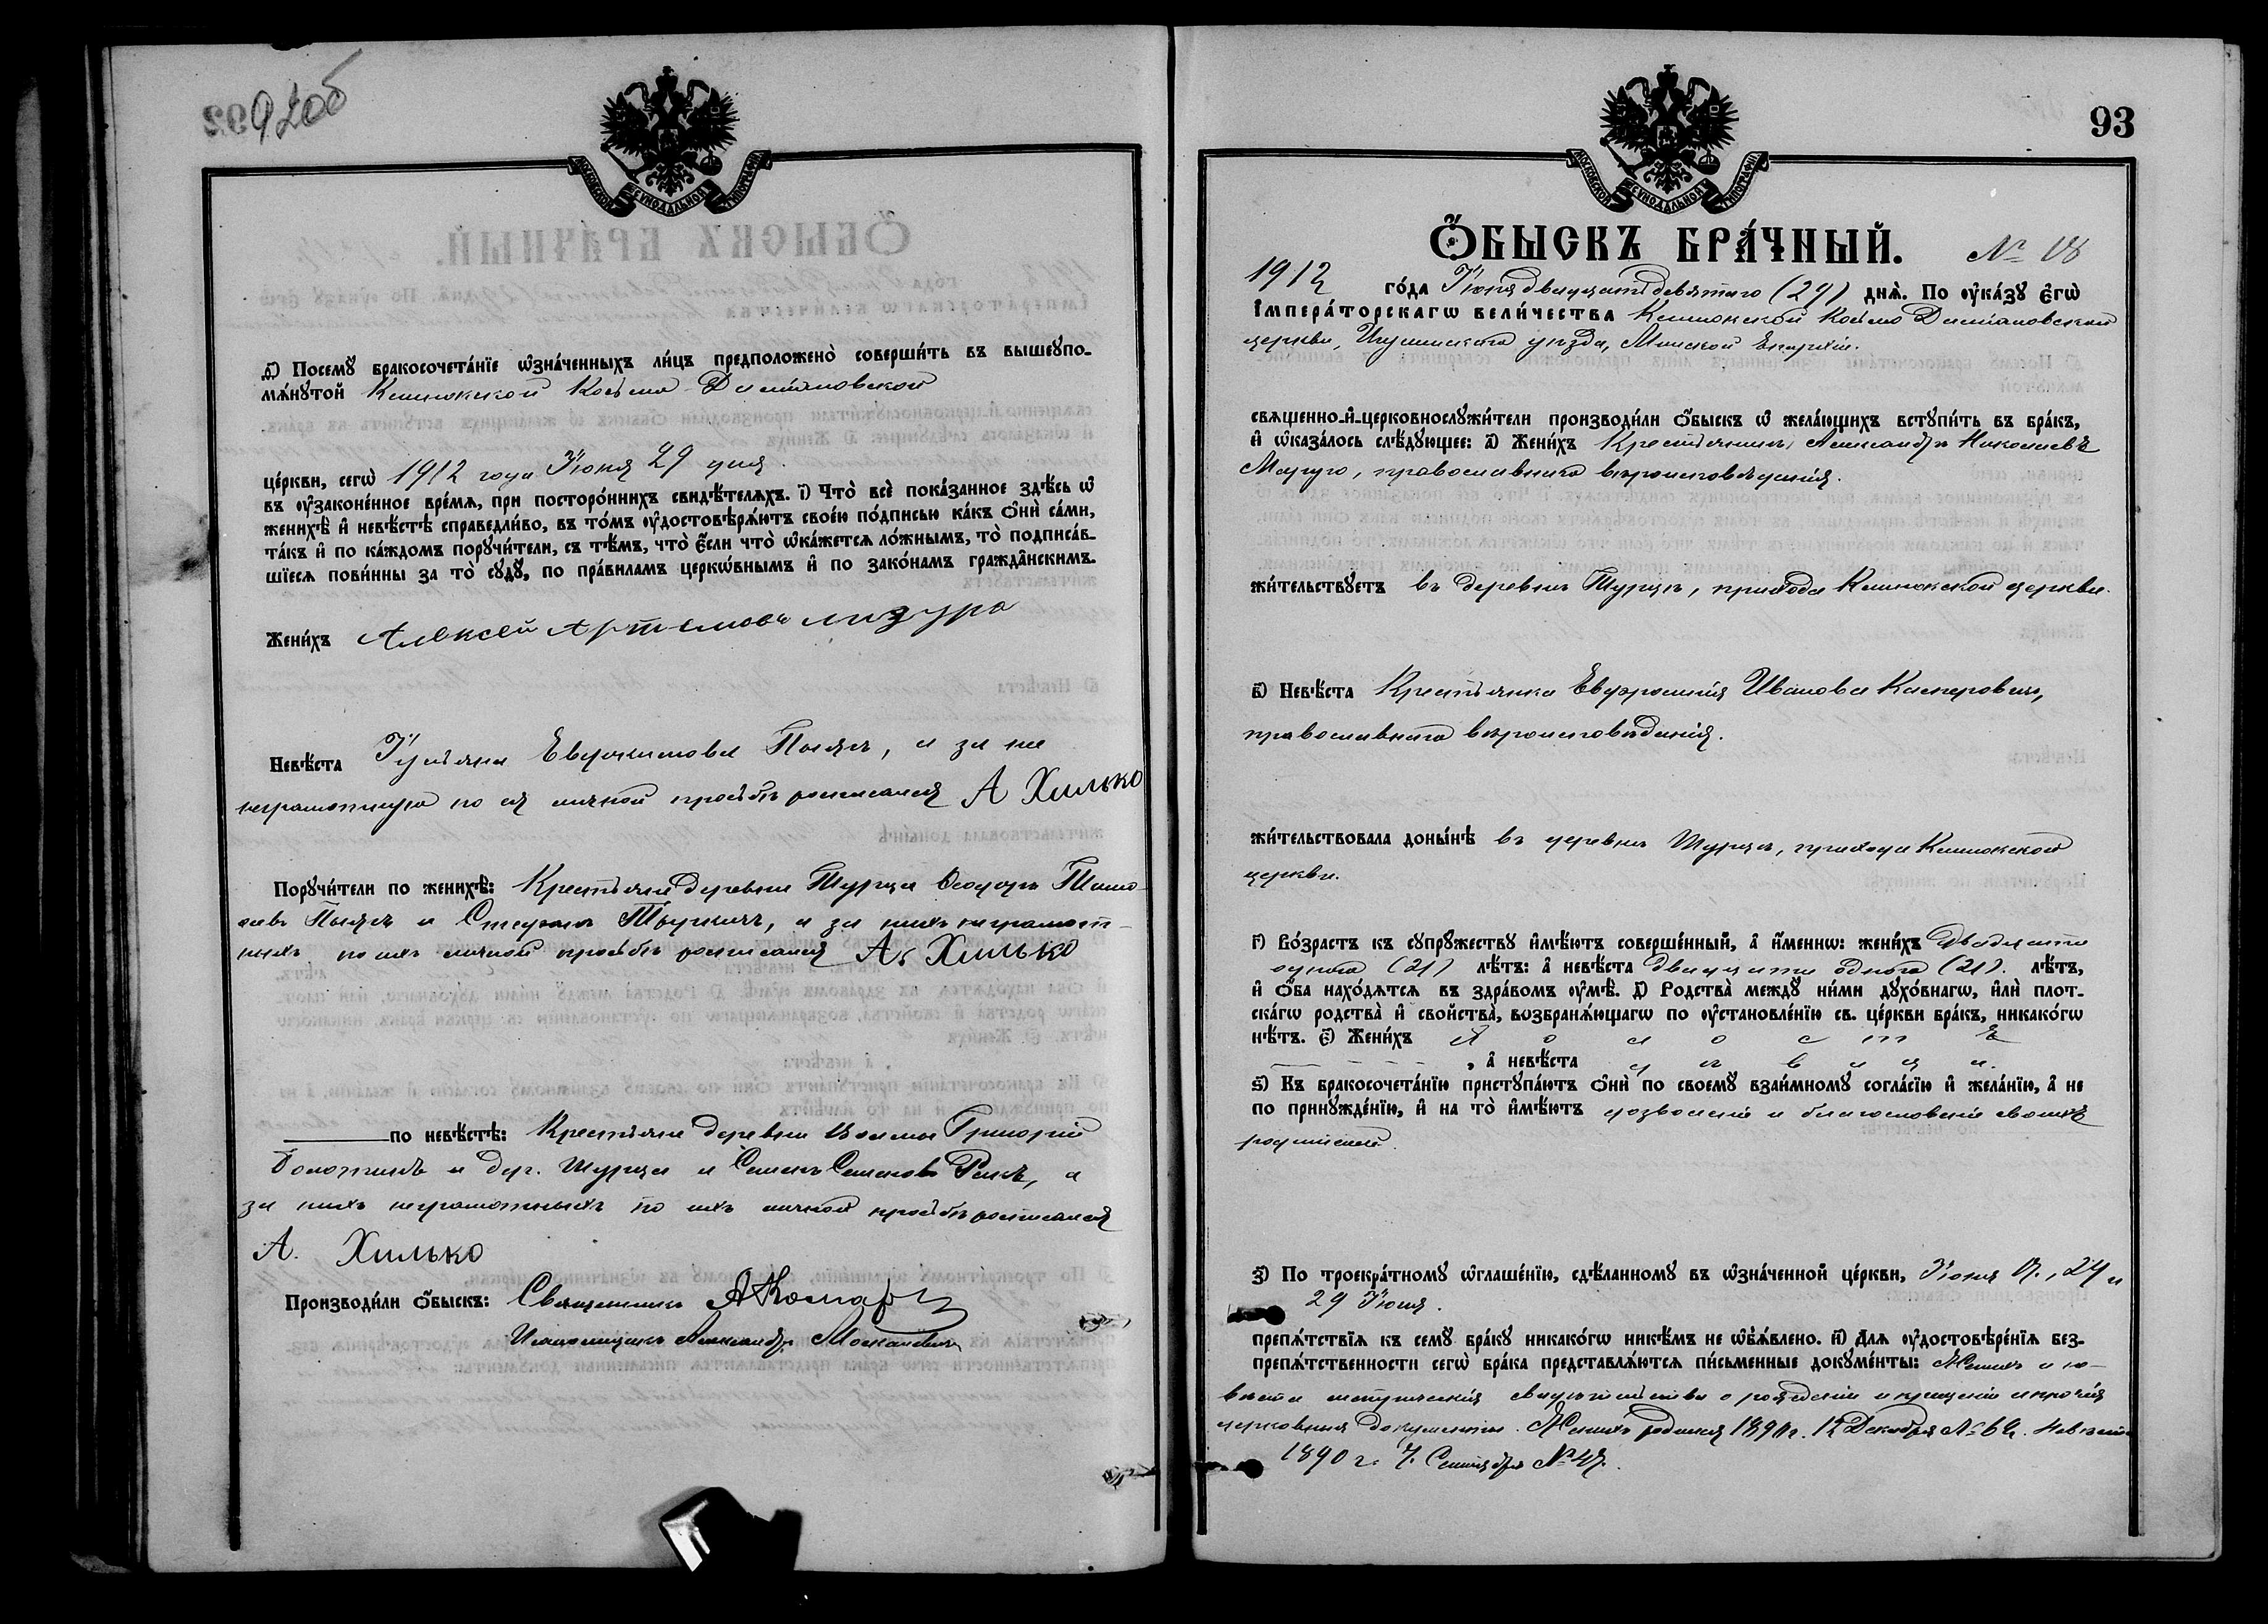 92об
МОСКОВСКОЙ СѴНОДАЛЬНОЙ ТИПОГРАФІИ
д҃) Посемꙋ бракосочета́нїе ѡ҆зна́ченныхъ ли́цъ предположено̀ соверши́ть въ вышеꙋпо-
мѧ́нꙋтой Клинокской Косьмо-Даміановской
це́ркви, сегѡ̀ 1912 года Іюня 29 дня.
въ ᲂу҆зако́ненное вре́мѧ, при посторо́ннихъ свидѣ́телѧхъ. і҃) Что̀ всѐ пока́занное здѣ́сь ѡ҆
женихѣ̀ и҆ невѣ́стѣ справедли́во, въ то́мъ ᲂу҆достовѣрѧ́ютъ свое́ю по́дписью ка́къ ѻ҆нѝ са́ми,
та́къ и҆ по ка́ждомъ порꙋчи́тели, съ тѣ́мъ, что̀ є҆́сли что̀ ѡ҆ка́жетсѧ ло́жнымъ, то̀ подписа́в-
шїесѧ пови́нны за то̀ сꙋдꙋ̀, по пра́виламъ церкѡ́внымъ и҆ по зако́намъ гражда̂нскимъ.
Жени́хъ Алексей Артемовъ Мазура
Невѣ́ста Іуліана Евфимова Пыляч, а за не
неграмотную по ея личной просьбѣ росписался А Хилько
Порꙋчи́тели по женихѣ̀: Крестьяне деревни Турца Ѳеодоръ Тимо-
и Стефанъ а за нихъ неграмот-
ныхъ по ихъ личной просьбѣ росписался А. Хилько
по невѣ́стѣ: Крестьяне деревни Григорій
и дер. Турца и Семенъ Семеновъ а
за нихъ неграмотныхъ по ихъ личной просьбѣ росписался
А. Хилько
Производи́ли ѻ҆́быскъ: Священникъ А Комаръ
Псаломщикъ Александръ
93
МОСКОВСКОЙ СѴНОДАЛЬНОЙ ТИПОГРАФІИ
Ѻ҆́БЫСКЪ БРА́ЧНЫЙ. № 18
1912 го́да Іюня двадцать девятаго (29) днѧ̀. По ᲂу҆ка́зꙋ є҆гѡ̀
І҆мпера́торскагѡ вели́чества Клинокской Косьмо Даміановской
церкви, Игуменскаго уѣзда, Минской Епархіи.
свѧщенно-и҆-церковнослꙋжи́тели производи́ли ѻ҆́быскъ ѡ҆ жела́ющихъ встꙋпи́ть въ бра́къ,
и҆ ѡ҆каза́лось слѣ́дꙋющее: а҃) Жени́хъ Крестьянинъ, Александръ Николаевъ
православнаго вѣроисповѣданія.
жи́тельствꙋетъ въ деревнѣ Турцѣ, прихода Клинокской церкви.
в҃) Невѣ́ста Крестьянка Евфросинія Иванова Касперовичъ,
православнаго вѣроисповѣданія.
жи́тельствовала доны́нѣ въ деревнѣ Турцѣ, прихода Клинокской
церкви.
г҃) Во́зрастъ къ сꙋпрꙋ́жествꙋ и҆мѣ́ютъ соверше́нный, а҆ и҆́меннѡ: жени́хъ двадцати
одного (21) лѣ́тъ: а҆ невѣ́ста двадцати одного (21). лѣ́тъ,
и҆ ѻ҆́ба нахо́дѧтсѧ въ здра́вомъ ᲂу҆мѣ̀. д҃) Родства̀ междꙋ̀ ни́ми дꙋхо́внагѡ, и҆лѝ плот-
ска́гѡ родства̀ и҆ сво́йства̀, возбранѧ́ющагѡ по ᲂу҆становле́нїю св. це́ркви бра́къ, никако́гѡ
нѣ́тъ. є҃) Жени́хъ х о л о с т ъ
, а҆ невѣ́ста д ѣ в и ц а.
ѕ҃) Къ бракосочета́нїю пристꙋпа́ютъ ѻ҆нѝ по своемꙋ̀ взаи́мномꙋ согла́сїю и҆ жела́нїю, а҆ не
по принꙋжде́нїю, и҆ на то̀ и҆мѣ́ютъ дозволеніе и благословеніе своихъ
родителей.
з҃) По троекра́тномꙋ ѡ҆глаше́нїю, сдѣ́ланномꙋ въ ѡ҆зна́ченной це́ркви, Іюня 17, 24 и
29 Іюня.
препѧ́тствїѧ къ семꙋ̀ бра́кꙋ никако́гѡ никѣ́мъ не ѡ҆б̾ѧ́влено. и҃) Длѧ ᲂу҆достовѣре́нїѧ без-
препѧ́тственности сегѡ̀ бра́ка представлѧ́ютсѧ пи́сьменные докꙋме́нты: Жениха и не-
вѣсты метрическія свидѣтельства о рожденіи и крещеніи и прочія
церковныя документы. Женихъ родился 1890 г. 12 Декабря № 62. Невѣста
1890 г. 7. Сентября № 47.